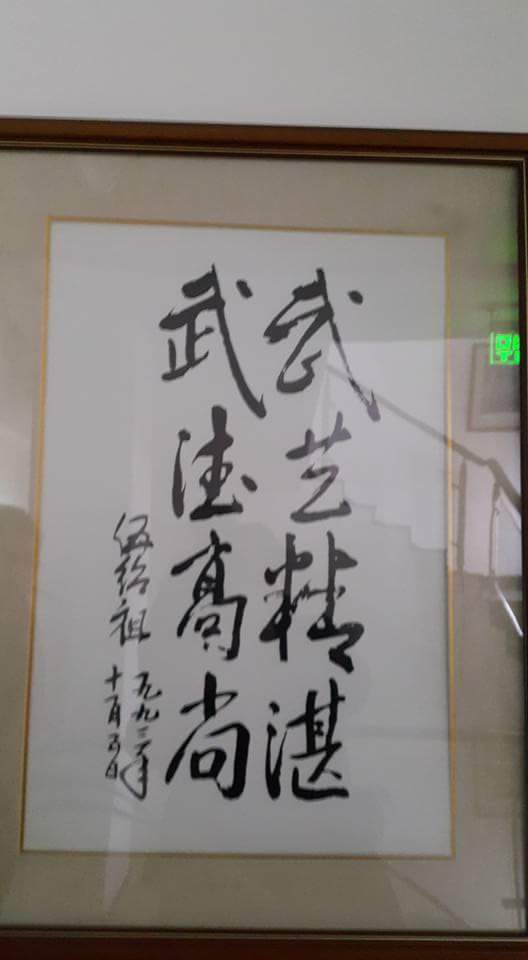 武艺精湛
武德高尚
伍绍祖
一九九三年
十一月五日